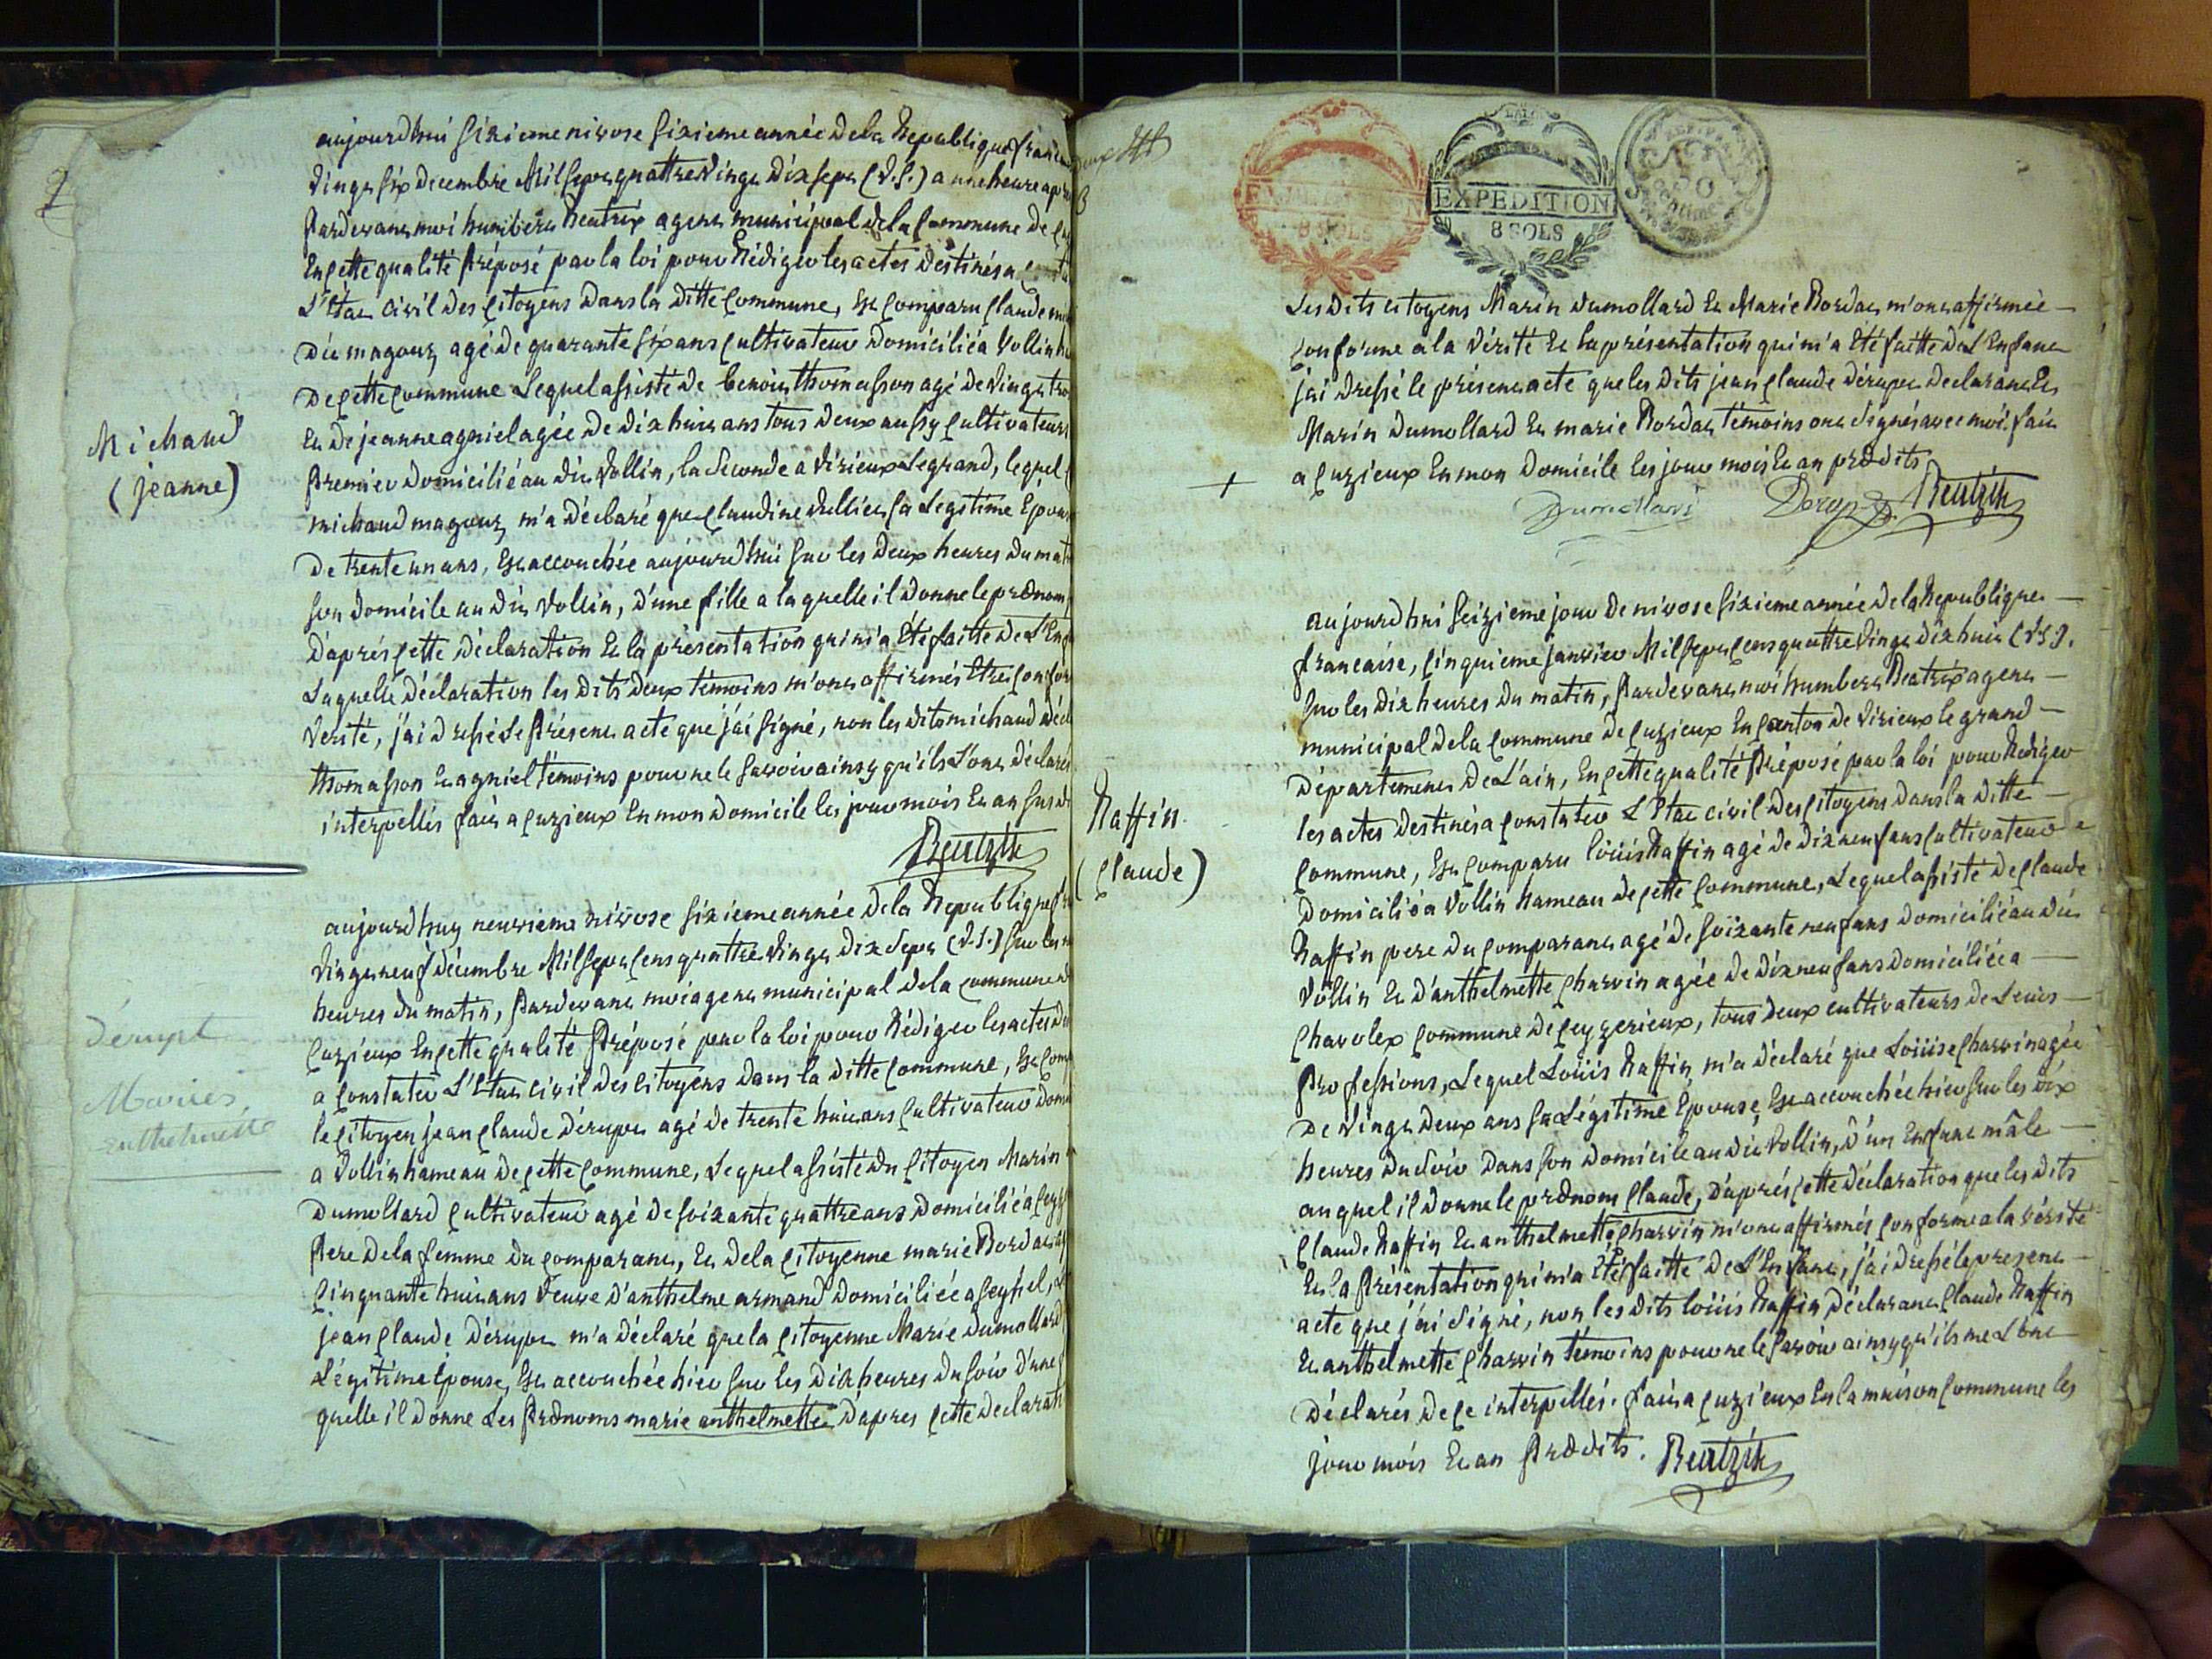 2
Michaud
(jeanne)
aujourdhui sixieme nivose sixieme année de la Republique francai
vingt six decembre Mil sept quattre vingt dix sept (V.S.) a une heure apr
Pardevant moi humbert Beatrix agent municipal de la Commune de Cu
En Cette qualité Préposé par la loi pour Rédiger les actes destinés a
L'Etat civil des Citoyens dans la ditte Commune, Est Comparu Claude mi
dit magout, agé de quarante six ans Cultivateur domicilié a Vollin ha
De Cette Commune Lequel assisté de benoit thomasson agé de vingt tro
Et de jeanne agniel agée de dix huit ans tous deux aussy Cultivateurs
Premier domicilié au dit Vollin, la seconde a Virieux Le grand, lequel
michaud magout m'a déclaré que Claudine Vulliet sa Légitime Epous
De trente un ans, Est accouchée aujourdhui sur les deux heures du mat
son domicile au dit Vollin, d'une fille a laquelle il donne le prænom
D'aprés Cette déclaration Et la présentation qui m'a Eté faitte de L'En
Laquelle déclaration les dits deux témoins m'ont affirmés Etre Confor
verité, j'ai dressé Le Présent acte que j'ai signé, non les dits michaud décl
thomasson Et agniel témoins pour ne le savoir ainsy qu'ils L'ont déclaré
interpellés fait a Cuzieux En mon domicile les jour mois Et an sus d
Beatrix
dérupt
Marie
anthelmette
aujourdhuy neuvieme nivose sixieme année de la Republique fr
vingt neuf décembre Mil sept Cens quattre vingt dix sept (V.S.) sur les
heures du matin, Pardevant moi agent municipal de la Commune d
Cuzieux En Cette qualité Préposé par la loi pour Rédiger les actes de
a Constater L'Etat civil des Citoyens dans la ditte Commune, Est Comp
le Citoyen jean Claude dérupt agé de trente huit ans Cultivateur domi
a Vollin hameau de Cette Commune, Lequel assisté du Citoyen Marin
Dumollard Cultivateur agé de soixante quattre ans domicilié a Ceyz
Pere de la femme du Comparant, Et de la Citoyenne marie Bordat
Cinquante huit ans veuve d'anthelme armand domiciliée a
jean Claude dérupt m'a déclaré que la Citoyenne Marie dumollard
Légitime Epouse, Est accouchée hier sur les dix heures du soir d'une
quelle il donne Les Prænoms marie anthelmette D'apres Cette declarati
EXPEDITION
8 SOLS
EXPEDITION
8 SOLS
50
Centimes
Les dits citoyens Marin dumollard Et Marie Bordat m'ont affirmée
Conforme a la vérité Et la présentation qui m'a Eté faitte de L'Enfant
j'ai dressé le présent acte que les dits jean Claude dérupt declarant Et
Marin dumollard Et marie Bordat témoins ont signés avec moi. fait
a Cuzieux En mon domicile les jour mois Et an prædits
Dumollard Derupt Beatrix
Raffin
(Claude)
aujourdhui seizieme jour de nivose sixieme année de la Republique
francaise, Cinquieme janvier Mil sept Cens quattre vingt dix huit (V.S.).
sur les dix heures du matin, Pardevant moi humbert Beatrix agent
municipal de la Commune de Cuzieux En Canton de Virieux le grand
Département de L'ain, En Cette qualité Préposé par la loi pour Rediger
les actes destinés a Constater L'Etat civil des Citoyens dans la ditte
Commune, Est Comparu loüis Raffin agé de dix neuf ans Cultivateur
Domicilié a Vollin hameau de Cette Commune, Lequel assisté de Claude
Raffin pere du Comparant agé de soixante neuf ans domicilié au dit
Vollin Et d'anthelmette Charvin agée de dix neuf ans domiciliée a
Charolex Commune de Ceyzerieux, tous deux cultivateurs de Leurs
Professions, Lequel Loüis Raffin m'a déclaré que Loüise Charvin agée
De vingt deux ans sa Légitime Epouse, Est accouchée hier sur les dix
heures du soir dans son domicile au dit Vollin, d'un Enfant mâle
auquel il donne le prænom Claude, d'aprés Cette déclaration que les dits
Claude Raffin Et anthelmette Charvin m'ont affirmés Conforme a la vérité
Et la Présentation qui m'a Eté faitte de L'Enfant, j'ai dressé le present
acte que j'ai signé, non les dits loüis Raffin déclarant Claude Raffin
Et anthelmette Charvin témoins pour ne le savoir ainsy qu'ils me L'ont
Déclarés de ce interpellés. fait a Cuzieux En la maison Commune les
jour mois Et an Prædits. Beatrix